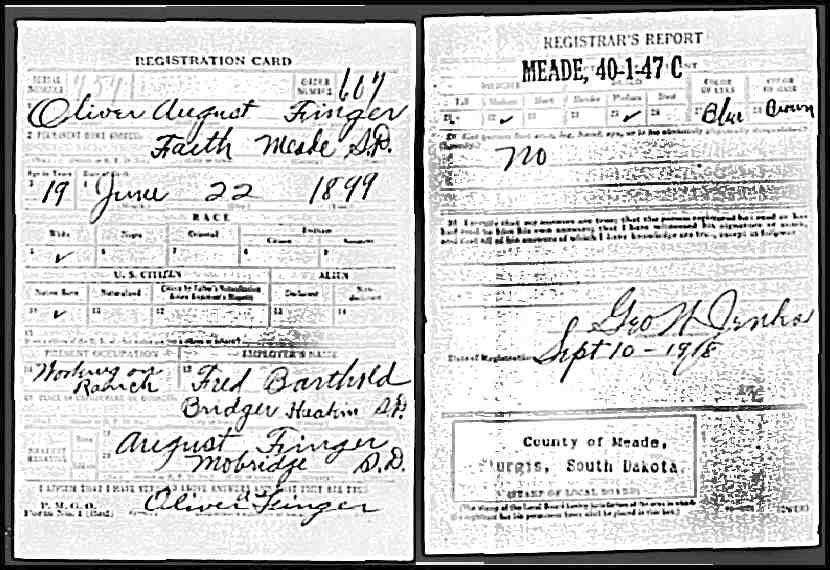 REGISTRATION CARD
SERIAL NUMBER
ORDER NUMBER 607
Oliver August Finger
2 PERMANENT HOME ADDRESS:
Faith Meade S.D.
Age in Years
Date of Birth
19 June 22 1899
RACE
White Negro Oriental Indian
Citizen
5 ✓ 6 7 8 9
U. S. CITIZEN ALIEN
Native Born Naturalized Citizen by Father's Naturalization Declarant
10 ✓ 11 12 13 14
15
PRESENT OCCUPATION EMPLOYER'S NAME
Working on Ranch
Fred Barthold
Bridger S.D.
NEAREST RELATIVE
August Finger
Mobridge S.D.
I AFFIRM THAT I HAVE VERIFIED ABOVE ANSWERS AND THAT THEY ARE TRUE
P. M. G. O.
Form No. 1 (Red)
Oliver Finger
REGISTRAR'S REPORT
MEADE, 40-1-47 C
HEIGHT BUILD COLOR OF EYES COLOR OF HAIR
Tall Medium Short Slender Medium Stout
21 22 ✓ 23 24 25 ✓ 26 27 Blue 28 Brown
29 Has person lost arm, leg, hand, eye, or is he obviously physically disqualified?
(Specify.)
No
30 I certify that my answers are true; that the person registered has read or has
had read to him his own answers; that I have witnessed his signature or mark,
and that all of his answers of which I have knowledge are true, except as follows:
Date of Registration Sept 10 - 1918
County of Meade,
Sturgis, South Dakota.
(STAMP OF LOCAL BOARD)
(The stamp of the Local Board having jurisdiction of the area in which
the registrant has his permanent home shall be placed in this box.)
(OVER)